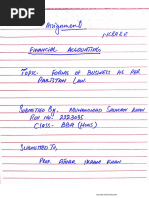 Assignment
FINANCIAL ACCOUNTING
TOPIC: FORMS OF BUSINESS AS PER
PAKISTAN LAW.
SUBMITTED BY: MUHAMMAD
ROLL NO:
CLASS: BBA (HONS)
SUBMITTED TO,
PROF. IKRAM KHAN